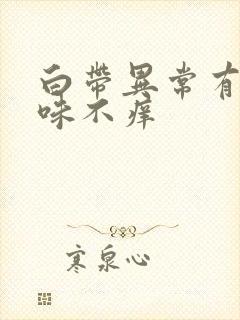 白帶異常有
味不痒
寒泉心